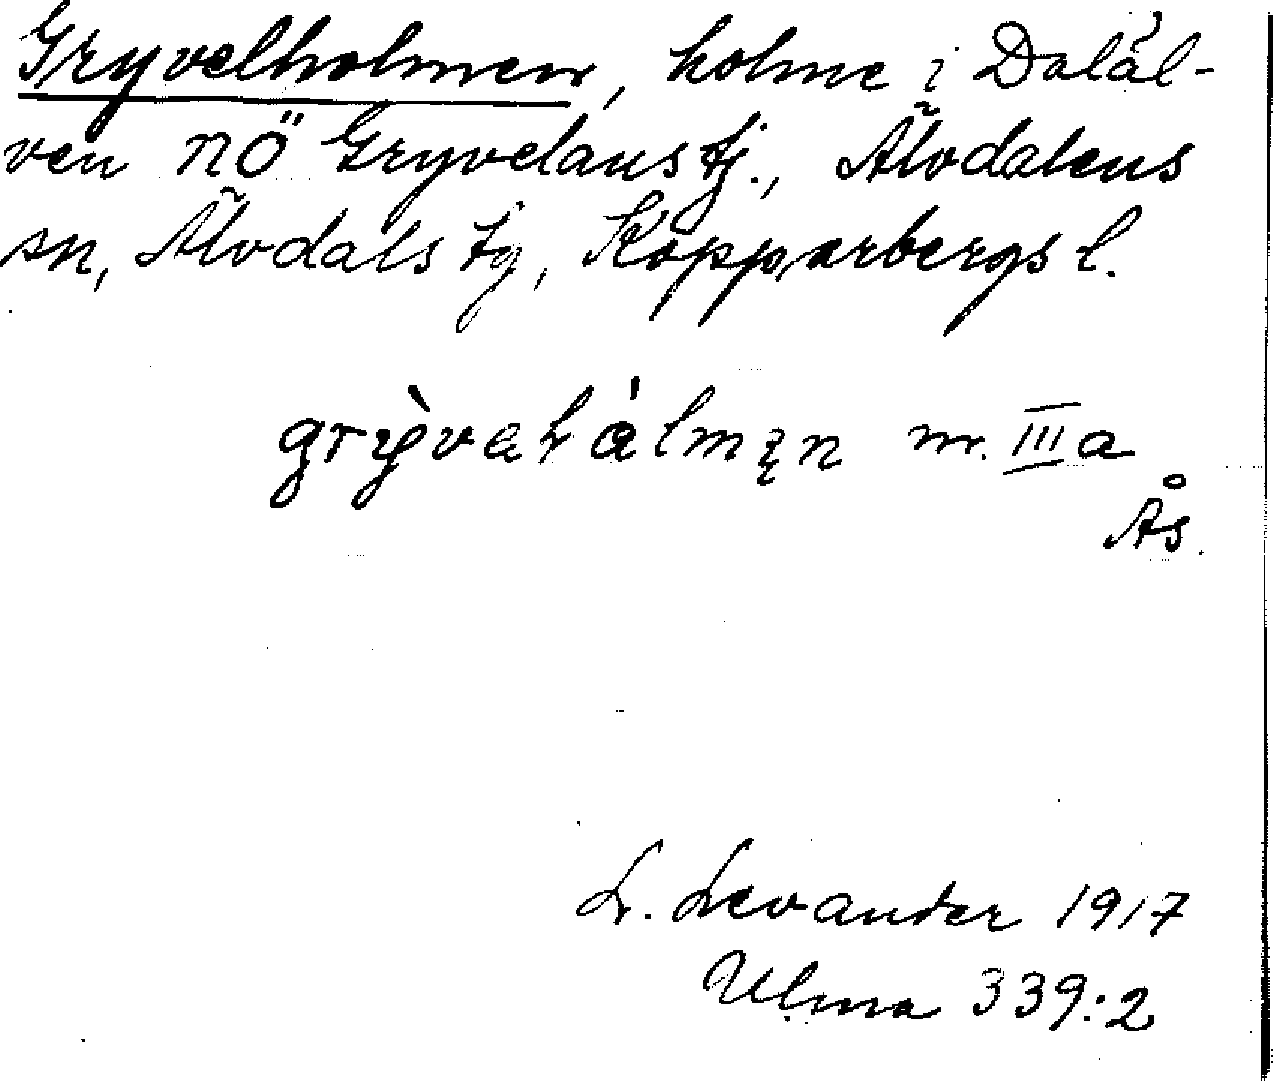 Gryvelholmen, holme i Daläl-
ven nö Gryvelans tj., Älvdalens
sn, Älvdals tg, Kopparbergs l.
m. III a
Ås.
L. Levander 1917
Ulma 339:2